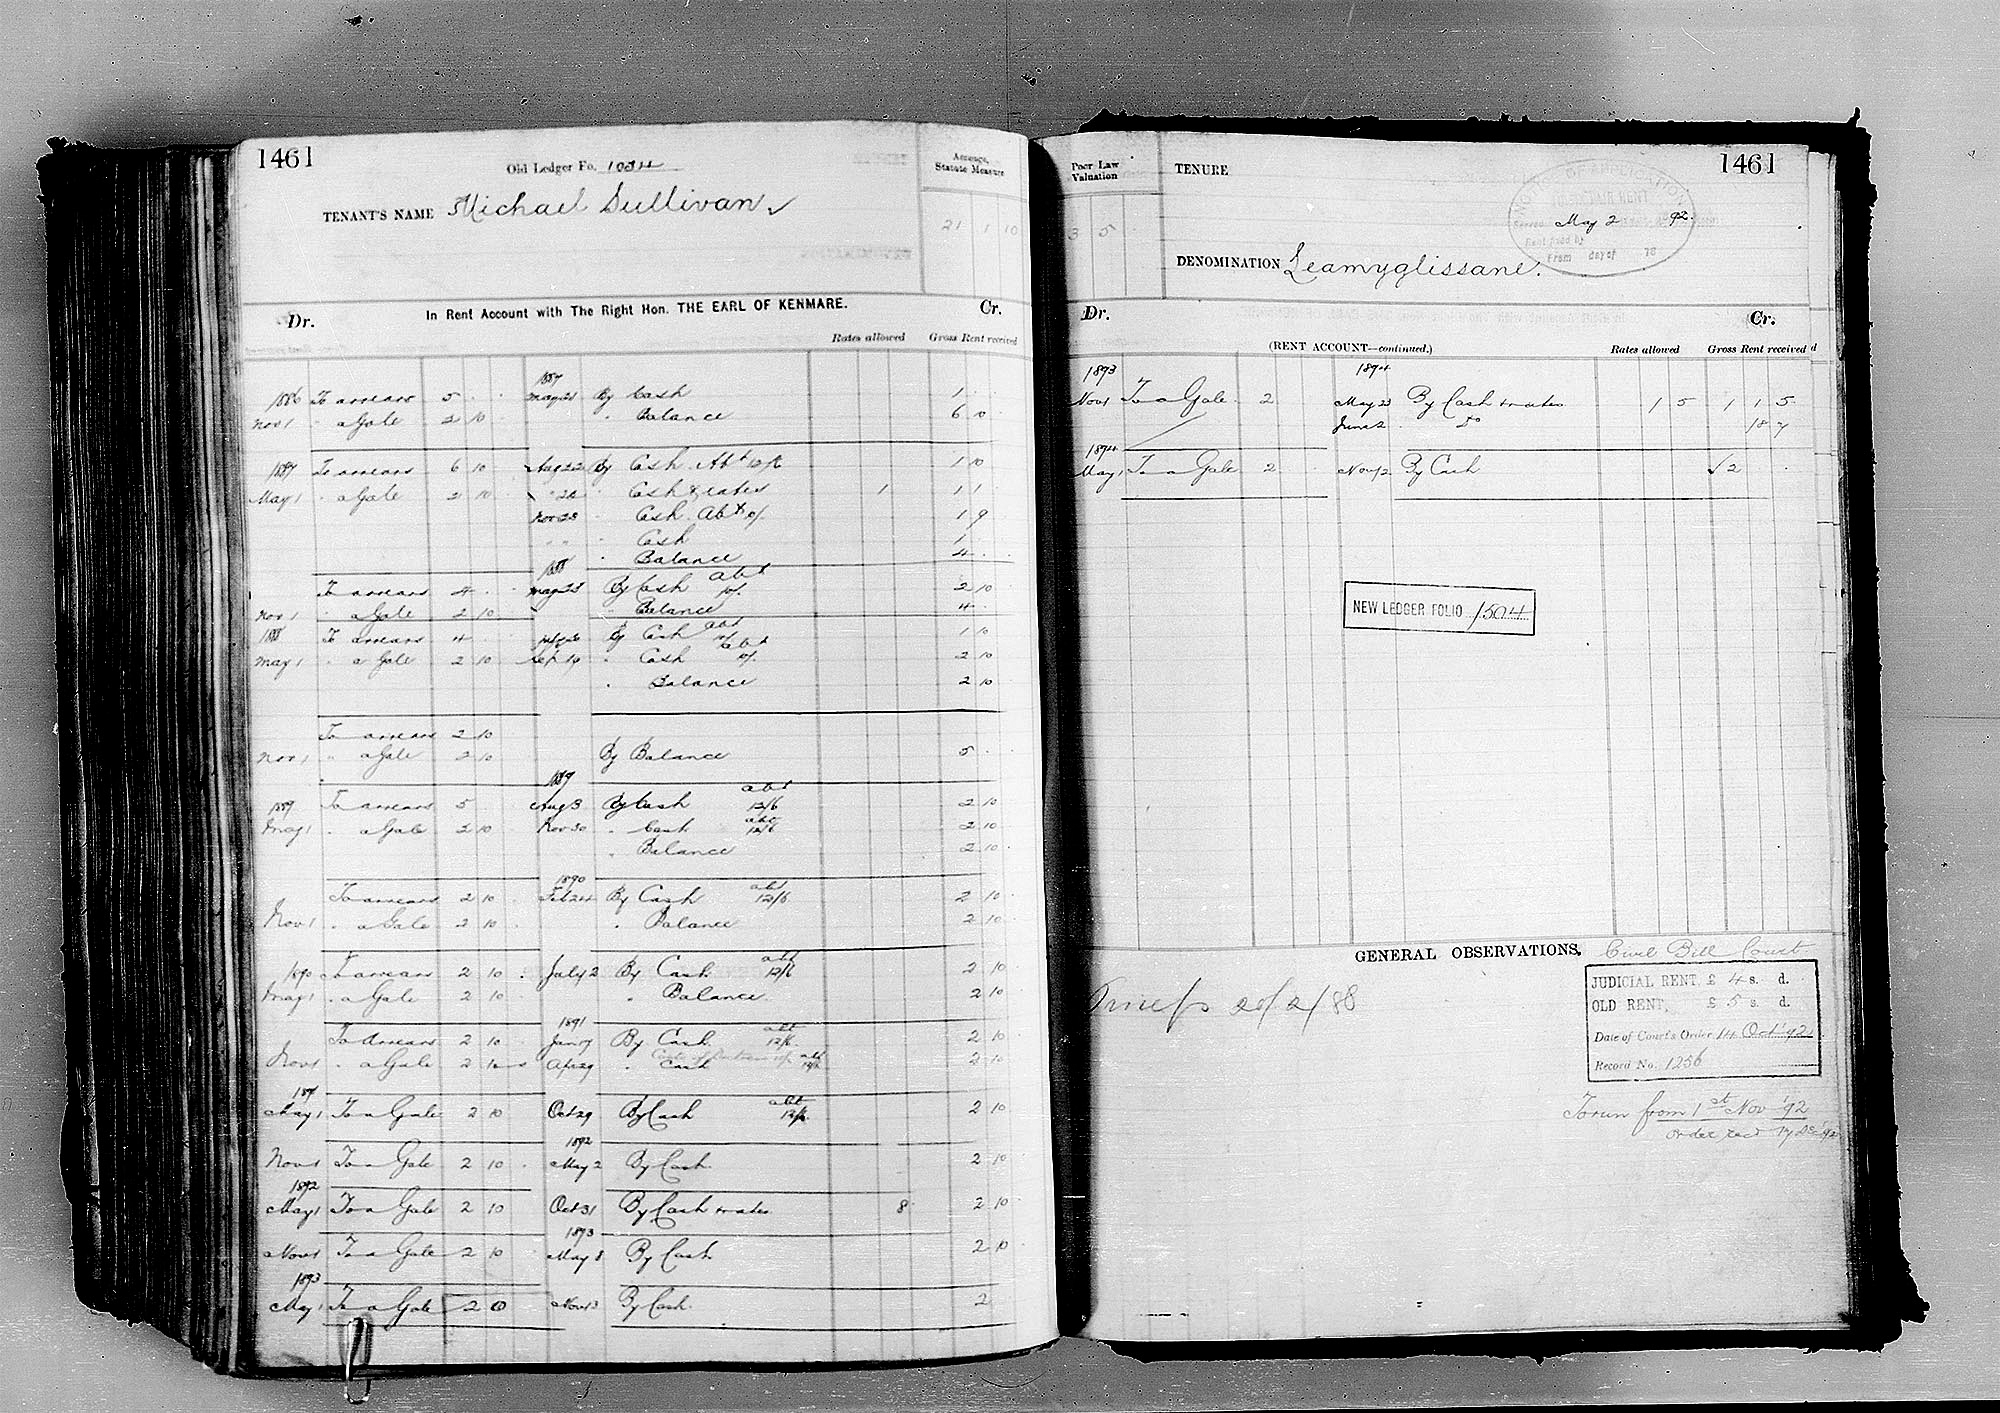 1461
Old Ledger Fo. 1034
TENANT'S NAME Michael Sullivan
Acreage, Statute Measure
21 1 10
In Rent Account with The Right Hon. THE EARL OF KENMARE.
Dr. Cr.
Rates allowed Gross Rent received
1887
1886 To arrears 5 . . May 21 By Cash 1 .
Nov 1 " a Gale 2 10 " Balance 6 10
1887 To arrears 6 10 Aug 22 By Cash Abt 12/6 1 10
May 1 " a Gale 2 10 " 22 " Cash & rates 1 1 1
Nov 23 " Cash Abt 10/. 1 9
" " " Cash 1
" Balance 4 .
1888
To arrears 4 . . May 23 By Cash abt 10/. 2 10
Nov 1 " a Gale 2 10 " Balance 4 .
1888 To arrears 4 . By Cash abt 10/ 1 10
May 1 " a Gale 2 10 Sep 19 " Cash abt 10/. 2 10
" Balance 2 10
To arrears 2 10
Nov 1 " a Gale 2 10 By Balance 5 .
1889
1889 To arrears 5 . Aug 3 By Cash abt 12/6 2 10
May 1 " a Gale 2 10 Nov 30 " Cash abt 12/6 2 10
" Balance 2 10
1890
To arrears 2 10 Feb 24 By Cash abt 12/6 2 10
Nov 1 " a Gale 2 10 " Balance 2 10
1890 To arrears 2 10 July 2 By Cash abt 12/6 2 10
May 1 " a Gale 2 10 " Balance 2 10
1891
To Arrears 2 10 Jan 7 By Cash abt 12/6 2 10
Nov 1 " a Gale 2 10 Apr 29 " Cash abt 12/6 2 10
1891
May 1 To a Gale 2 10 Oct 29 By Cash abt 12/6 2 10
1892
Nov 1 To a Gale 2 10 May 2 By Cash 2 10
1892
May 1 To a Gale 2 10 Oct 31 By Cash & rates 8 2 10
1893
Nov 1 To a Gale 2 10 May 8 By Cash 2 10
1893
May 1 To a Gale 2 0 Nov 13 By Cash 2
Poor Law Valuation
3 5
TENURE
1461
NOTICE OF APPLICATION
FAIR RENT
Served May 2 92
Rent fixed by
From day of 18
DENOMINATION Leamyglissane.
Dr. Cr.
(RENT ACCOUNT—continued.)
Rates allowed Gross Rent received
1893 1894
Nov 1 To a Gale 2 May 23 By Cash & rates 1 5 1 1 5
June 2 Do 18 7
1894
May 1 To a Gale 2 Nov 12 By Cash 2 .
NEW LEDGER FOLIO 1504
GENERAL OBSERVATIONS. Civil Bill Court
20/2/88
JUDICIAL RENT, £ 4 s. d.
OLD RENT, £ 5 s. d.
Date of Court's Order 14 Oct '92
Record No. 1256
To run from 1st Nov '92
order recd 17 Dec '92